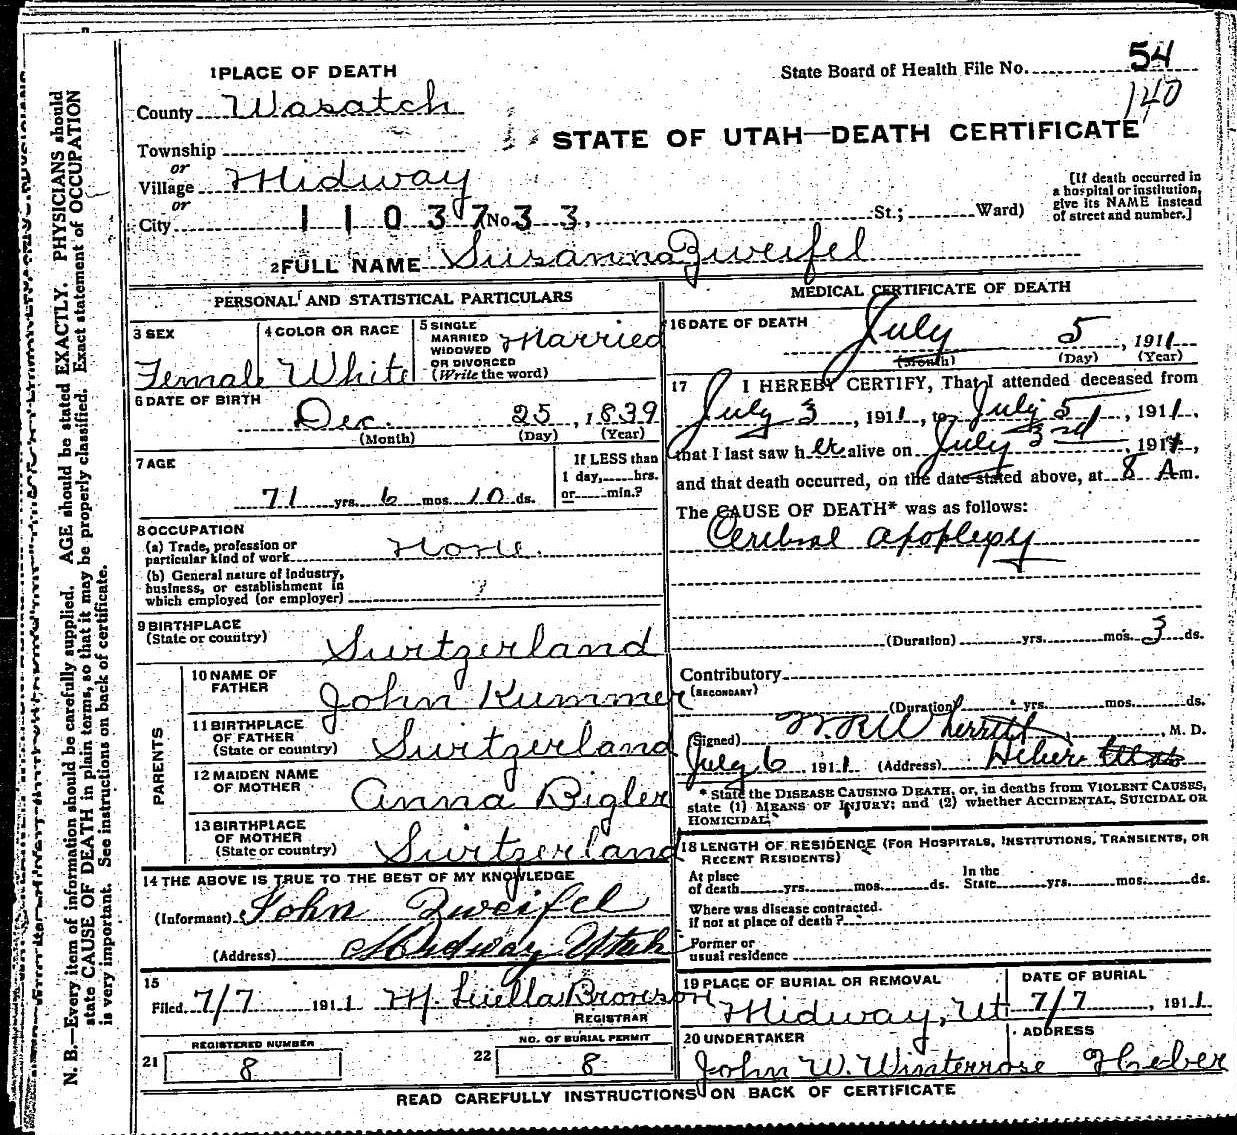 1 PLACE OF DEATH
State Board of Health File No. 54
140
County Wasatch
STATE OF UTAH—DEATH CERTIFICATE
Township
or
Village Midway
or
City 11037 No. 33, St.; Ward)
[If death occurred in
a hospital or institution,
give its NAME instead
of street and number.]
2 FULL NAME Susanna Zweifel
PERSONAL AND STATISTICAL PARTICULARS
3 SEX
Female
4 COLOR OR RACE
White
5 SINGLE
MARRIED
WIDOWED
OR DIVORCED
(Write the word)
Married
6 DATE OF BIRTH
Dec. 25, 1839
(Month) (Day) (Year)
7 AGE
71 yrs. 6 mos. 10 ds.
If LESS than
1 day, hrs.
or min.?
8 OCCUPATION
(a) Trade, profession or
particular kind of work None.
(b) General nature of industry,
business, or establishment in
which employed (or employer)
9 BIRTHPLACE
(State or country)
Switzerland
PARENTS
10 NAME OF
FATHER
John Kummer
11 BIRTHPLACE
OF FATHER
(State or country)
Switzerland
12 MAIDEN NAME
OF MOTHER
Anna Bigler
13 BIRTHPLACE
OF MOTHER
(State or country)
Switzerland
14 THE ABOVE IS TRUE TO THE BEST OF MY KNOWLEDGE
(Informant) John Zweifel
(Address) Midway Utah
15
Filed 7/7 1911 M. Luella Bronson
REGISTRAR
21
REGISTERED NUMBER
8
22
NO. OF BURIAL PERMIT
8
MEDICAL CERTIFICATE OF DEATH
16 DATE OF DEATH
July 5, 1911
(Month) (Day) (Year)
17 I HEREBY CERTIFY, That I attended deceased from
July 3, 1911, to July 5, 1911,
that I last saw her alive on July 3rd, 1911,
and that death occurred, on the date stated above, at 8 Am.
The CAUSE OF DEATH* was as follows:
Cerebral apoplexy
(Duration) yrs. mos. 3 ds.
Contributory
(SECONDARY)
(Duration) yrs. mos. ds.
(Signed) W. R. Wherritt, M. D.
July 6 1911 (Address) Heber
* State the DISEASE CAUSING DEATH, or, in deaths from VIOLENT CAUSES,
state (1) MEANS OF INJURY; and (2) whether ACCIDENTAL, SUICIDAL OR
HOMICIDAL.
18 LENGTH OF RESIDENCE (FOR HOSPITALS, INSTITUTIONS, TRANSIENTS, OR
RECENT RESIDENTS)
At place
of death yrs. mos. ds.
In the
State yrs. mos. ds.
Where was disease contracted.
if not at place of death?
Former or
usual residence
19 PLACE OF BURIAL OR REMOVAL
Midway, Ut
DATE OF BURIAL
7/7, 1911
20 UNDERTAKER
John W. Winterrose
ADDRESS
Heber
READ CAREFULLY INSTRUCTIONS ON BACK OF CERTIFICATE
N. B.—Every item of information should be carefully supplied. AGE should be stated EXACTLY. PHYSICIANS should
state CAUSE OF DEATH in plain terms, so that it may be properly classified. Exact statement of OCCUPATION
is very important. See instructions on back of certificate.